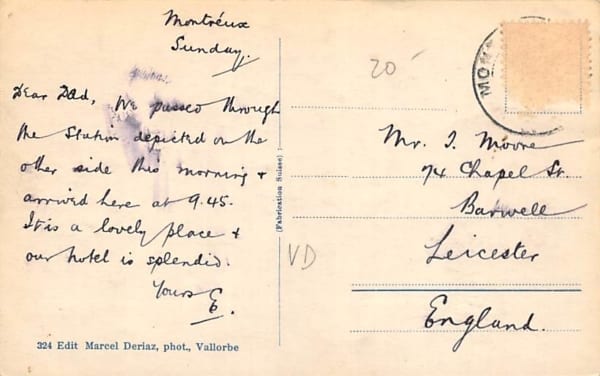 Montréux
Sunday.
Dear Dad, We passed through
the Station depicted on the
other side this morning +
arrived here at 9.45.
It is a lovely place +
our hotel is splendid.
Yours E.
324 Edit Marcel Deriaz, phot., Vallorbe
(Fabrication Suisse)
20
VD
MON
Mr. J. Moore
74 Chapel St.
Barwell
Leicester
England.